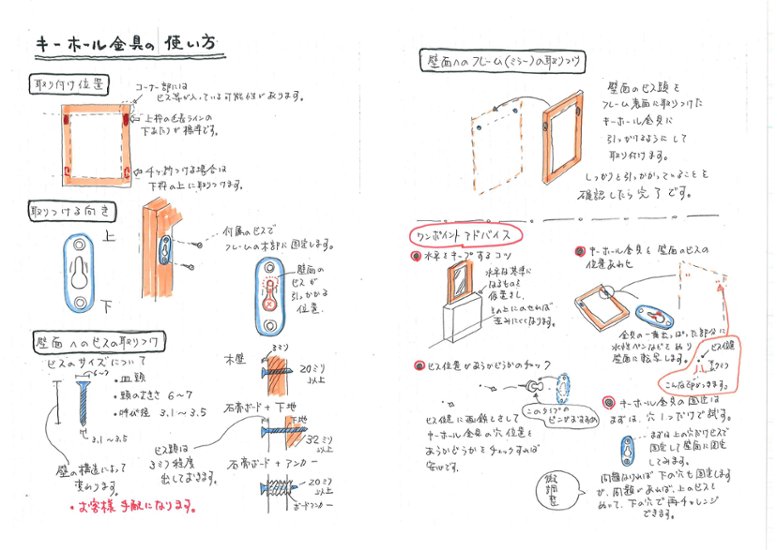 キーホール金具の使い方
取り付け位置
コーナー部には
ビス等が入っている可能性があります。
上枠の
下あたりが標準です。
4ヶ所つける場合は
下枠の上に取りつけます。
取りつける向き
上
下
付属のビスで
フレームの木部に固定します。
壁面の
ビスが
引っかかる
位置.
壁面へのビスの取りつけ
ビスのサイズについて
6〜7
・皿頭
・頭の大きさ 6〜7
・呼び径 3.1〜3.5
3.1〜3.5
壁の構造によって
変わります。
・お客様手配になります。
ビス頭は
3ミリ程度
出しておきます。
木壁
3ミリ
20ミリ
以上
石膏ボード+下地
32ミリ
以上
石膏ボード+アンカー
20ミリ
以上
ボードアンカー
壁面へのフレーム(ミラー)の取りつけ
壁面のビス頭を
フレーム裏面に取りつけた
キーホール金具に
引っかけるようにして
取り付けます。
しっかりと引っかかっていることを
確認したら完了です。
ワンポイントアドバイス
水平をキープするコツ
水平な基準に
なるものを
仮置きし、
その上にのせれば
歪みにくくなります。
キーホール金具と壁面のビスの
位置あわせ
金具の一番出っぱった部分に
水性ペンなどでぬり
壁面に転写します。
ビス位置
こんな印がつきます。
ビス位置があうかどうかのチェック
このタイプの
ピンがよいもの
ビス位置に画鋲をさして
キーホール金具の穴位置と
あうかどうかをチェックすれば
安心です。
キーホール金具の固定は
まずは、穴1つだけで試す。
まずは上の穴だけビスで
固定して壁面に固定
してみます。
問題なければ下の穴も固定します
が、問題があれば、上のビスを
ぬいて、下の穴で再チャレンジ
できます。
微調整